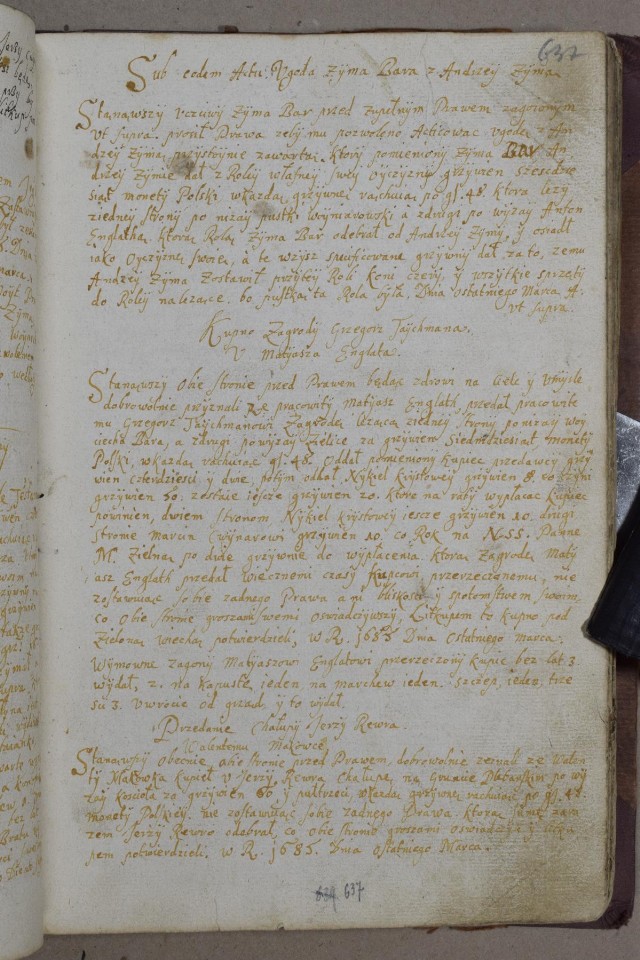 637
Sub eodem Actu. Ugoda Zÿma Bara z Andrzeÿ Zÿma
Stanąwszÿ Uczciwÿ Zÿma Bar przed zupełnÿm Prawem zagojonÿm
Vt supra. prosił Prawa żebÿ mu pozwolono Acticowac Ugodę z An
drzeÿ Zÿmą, przÿstoÿnie zawartą. Ktorÿ pomienionÿ Zÿma BAR An
drzeÿ Zÿmie dał z Roliÿ własneÿ sweÿ Oÿczÿznÿ grzÿwien szescdzie
siąt monetÿ Polski w każdą grzÿwnę rachuiąc po gł. 48. ktora leżÿ
z iedneÿ stronÿ po niżaÿ Pustki Woÿniarowski a z drugi po wÿżaÿ Anton
Englatha. ktorą Rolą Zÿma Bar odebrał od Andrzeÿ Zÿmÿ, ÿ osiadł
iako Oÿczÿznę swoię, a te wÿższ specificowane grzÿwnÿ dał za to, że mu
Andrzeÿ Zÿma zostawił przÿ teÿ Roli koni czterÿ, ÿ wszÿtkie sprzętÿ
do Roliÿ należące. bo pustka ta Rola bÿła. Dnia ostatniego Marca A.
vt supra.
Kupno Zagrodÿ Grzegorz Taÿchmana.
U Matÿasza Englata.
Stanąwszÿ Obie stronie przed Prawem będąc zdrowi na Ciele ÿ Umÿsle
dobrowolnie przÿznali że pracowitÿ Matÿasz Englath przedał pracowite
mu Grzegorz Taÿchmanowi Zagrodę leżącą z iedneÿ stronÿ po niżaÿ Woÿ
ciecha Bara, a z drugi po wÿżaÿ Zielice za grzÿwien siedmdziesiąt monetÿ
Polski, w każdą rachuiąc gł. 48. Oddał pomienionÿ kupiec przedawcÿ grzÿ
wien czterdziesci ÿ dwie, potÿm odbał Nÿkiel Krÿstoweÿ grzÿwien 8. co czÿni
grzÿwien 50. zostaie iescze grzÿwien 20. ktore na ratÿ wÿpłacac kupiec
powinien, dwiem stronom Nÿkiel Krÿstoweÿ iescze grzÿwien 10. drugi
stronie Marun Cwÿnarowi grzÿwien 10. co Rok na N. SS. Pannę
M. Zielną po dwie grzÿwnie do wÿpłacenia. ktorą Zagrodę Matÿ
iasz Englath przedał wiecznemi czasÿ kupcowi przerzeczonemu, nie
zostawuiąc sobie żadnego Prawa ani bliskosci ÿ spotomstwem swoim
co obie stronie groszami swemi oswiadcziwszÿ, Litkupem to kupno pod
Zieloną wiechą potwierdzieli, w R. 1685 Dnia Ostatniego Marca.
Wÿmowne zagonÿ Matÿaszowi Englatowi przerzeczonÿ kupiec bez lat 3.
wÿdał, 2. na kapustę ieden na marchew ieden. szczep, ieden, trze
sni 3. u wrocie od grząd, ÿ to wÿdał.
Przedanie Chałupÿ Jerzÿ Rewra.
Walentemu Makowce.
Stanąwszÿ obecnie, obie stronie przed Prawem, dobrowolnie zeznali że Walen
tÿ Makowka kupieł u Jerzÿ Rewra Chałupę, na Gruncie Plebańskim po wÿ
żaÿ koscioła za grzÿwien 66 ÿ pułtrzeci w każdą grzÿwnę rachuiąc po gł. 48.
monetÿ Polskieÿ. nie zostawuiąc sobie żadnego Prawa ktorą sumę zara
zem Jerzÿ Rewro odebrał, co obie stronie groszami oswiadczÿli ÿ litku
pem potwierdzieli. w R. 1685. Dnia Ostatniego Marca.
637